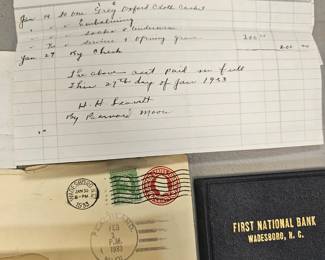 Jan 14 To One Grey Oxford Cloth Casket
" " " Embalming
" " " Socks & Underwear
" " Services & Opening grave 200.00
Jan 27 By Check 200 00
The above acct paid in full
This 27th day of Jan 1933
H. H. Leavitt
By Bernard Moore
WADESBORO, N.C.
JAN 30
6-PM
1933
FEB
P.M.
1933
FIRST NATIONAL BANK
WADESBORO, N. C.